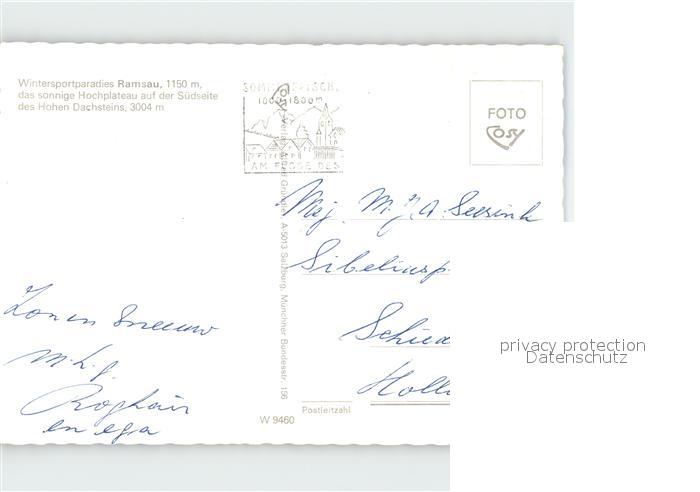 Wintersportparadies Ramsau, 1150 m,
das sonnige Hochplateau auf der Südseite
des Hohen Dachsteins, 3004 m
1000-1800m
AM FUSSE DES
FOTO
Cosy
A-5013 Salzburg, Münchner Bundesstr. 156
Mej. M.J.A. Seesink
Sibeliusp
Schied
Holl
Zon en sneeuw
m.h.g.
en ega
Postleitzahl
W 9460
privacy protection
Datenschutz